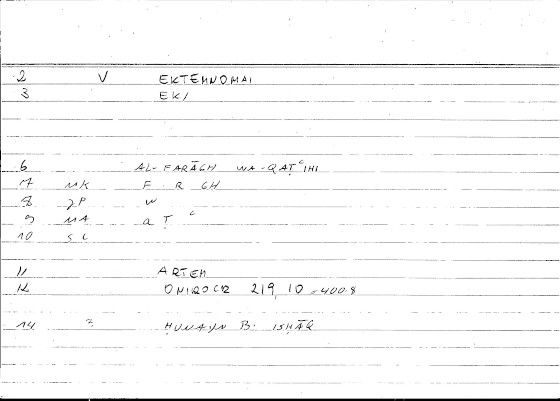 2 V EKTEMNOMAI
3 EK/
6 AL-FARĀGH WA-QAṬʿIHI
7 MK F R GH
8 JP W
9 MA Q Ṭ ʿ
10 SL
11 ARTEM
12 ONIROCR 219, 10 = 400.8
14 2 ḤUNAYN B. ISḤĀQ